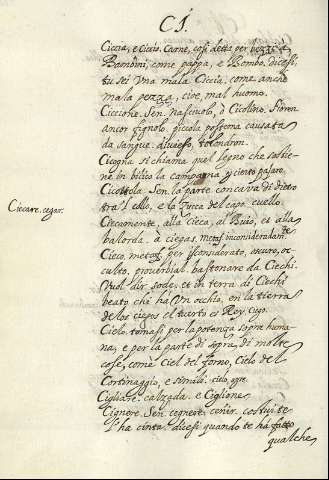 C I.
Ciccia, e Ciccio. Carne, cosi detta per vezzo a
Bambini, come pappa, e Bombo, dicesi,
tu sei una mala Ciccia, come anche
mala pezza, cioe, mal huomo.
Ciccione. Sen. Nasciuolo, ò Cicolino. Fioren
ancor fignolo, piccola postema causata
da sangue. divieso, tolondron.
Cicogna si chiama quel legno che sostie-
ne in bilico la campagna y ciento pajaro,
Cicottola. Sen. la parte concava di dietro
tra'l collo, e la Zucca del capo. cuello
Ciecamente, alla Cieca, al Buio, et alla
balorda. à ciegas. metaf. inconsideradamte
Cieco, metaf. per isconsiderato, oscuro, oc-
culto, proverbial. bastonare da Ciechi.
Vuol dir sode, et in terra di Ciechi
beato chi hà un occhio, en la tierra
de los ciegos el tuerto es Rey. cugo.
Cielo, tomasi per la potenza sopra huma-
na, e per la parte di sopra di molte
cose, come Ciel del forno, Cielo del
Cortinaggio, e simili. cielo,
Cigliare. calzada. e Ciglione
Cignere. Sen. cegnere, ceñir. costui te
l'ha cinta. dicesi quando te hà fatto
qualche
Ciecare. cegar.